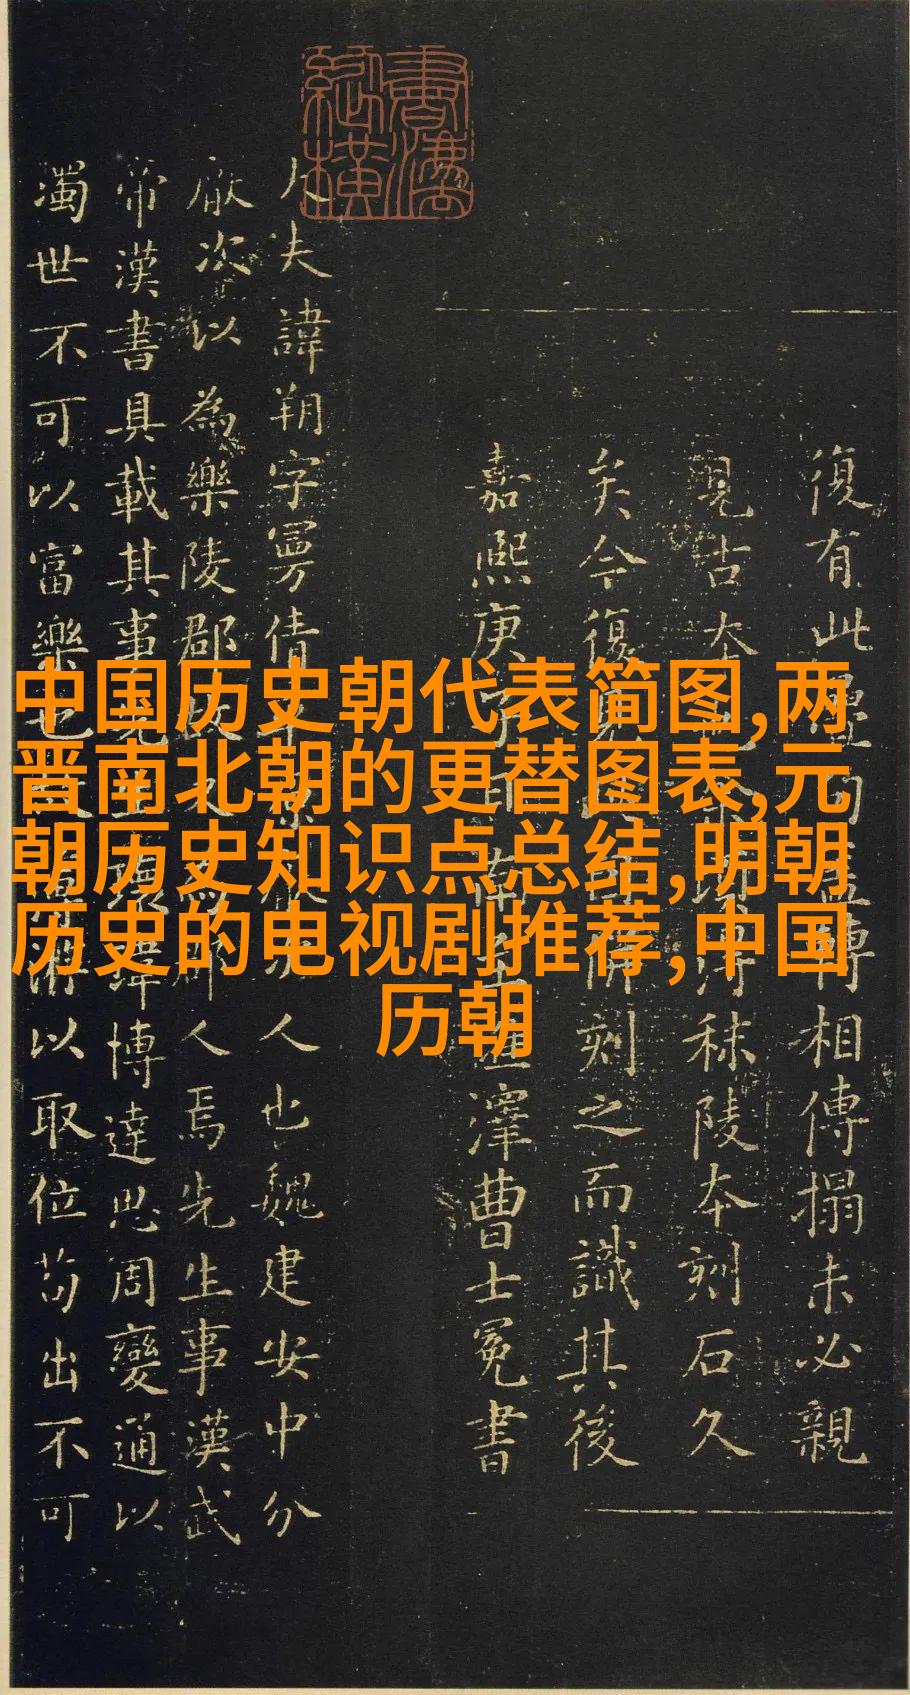 中国历史朝代表简图,两
晋南北朝的更替图表,元
朝历史知识点总结,明朝
历史的电视剧推荐,中国
历朝
復有此 相傳搨未必親
見古本 秣陵本刻石久
矣今復 刻之而識其後
嘉熙庚 澤曹士冕書
大夫諱朔字曼倩 人也魏建安中分
厭次以為樂陵郡 人焉先生事漢武
帝漢書具載其事 博達思周變通以
濁世不可以富樂也 以取位苟出不可